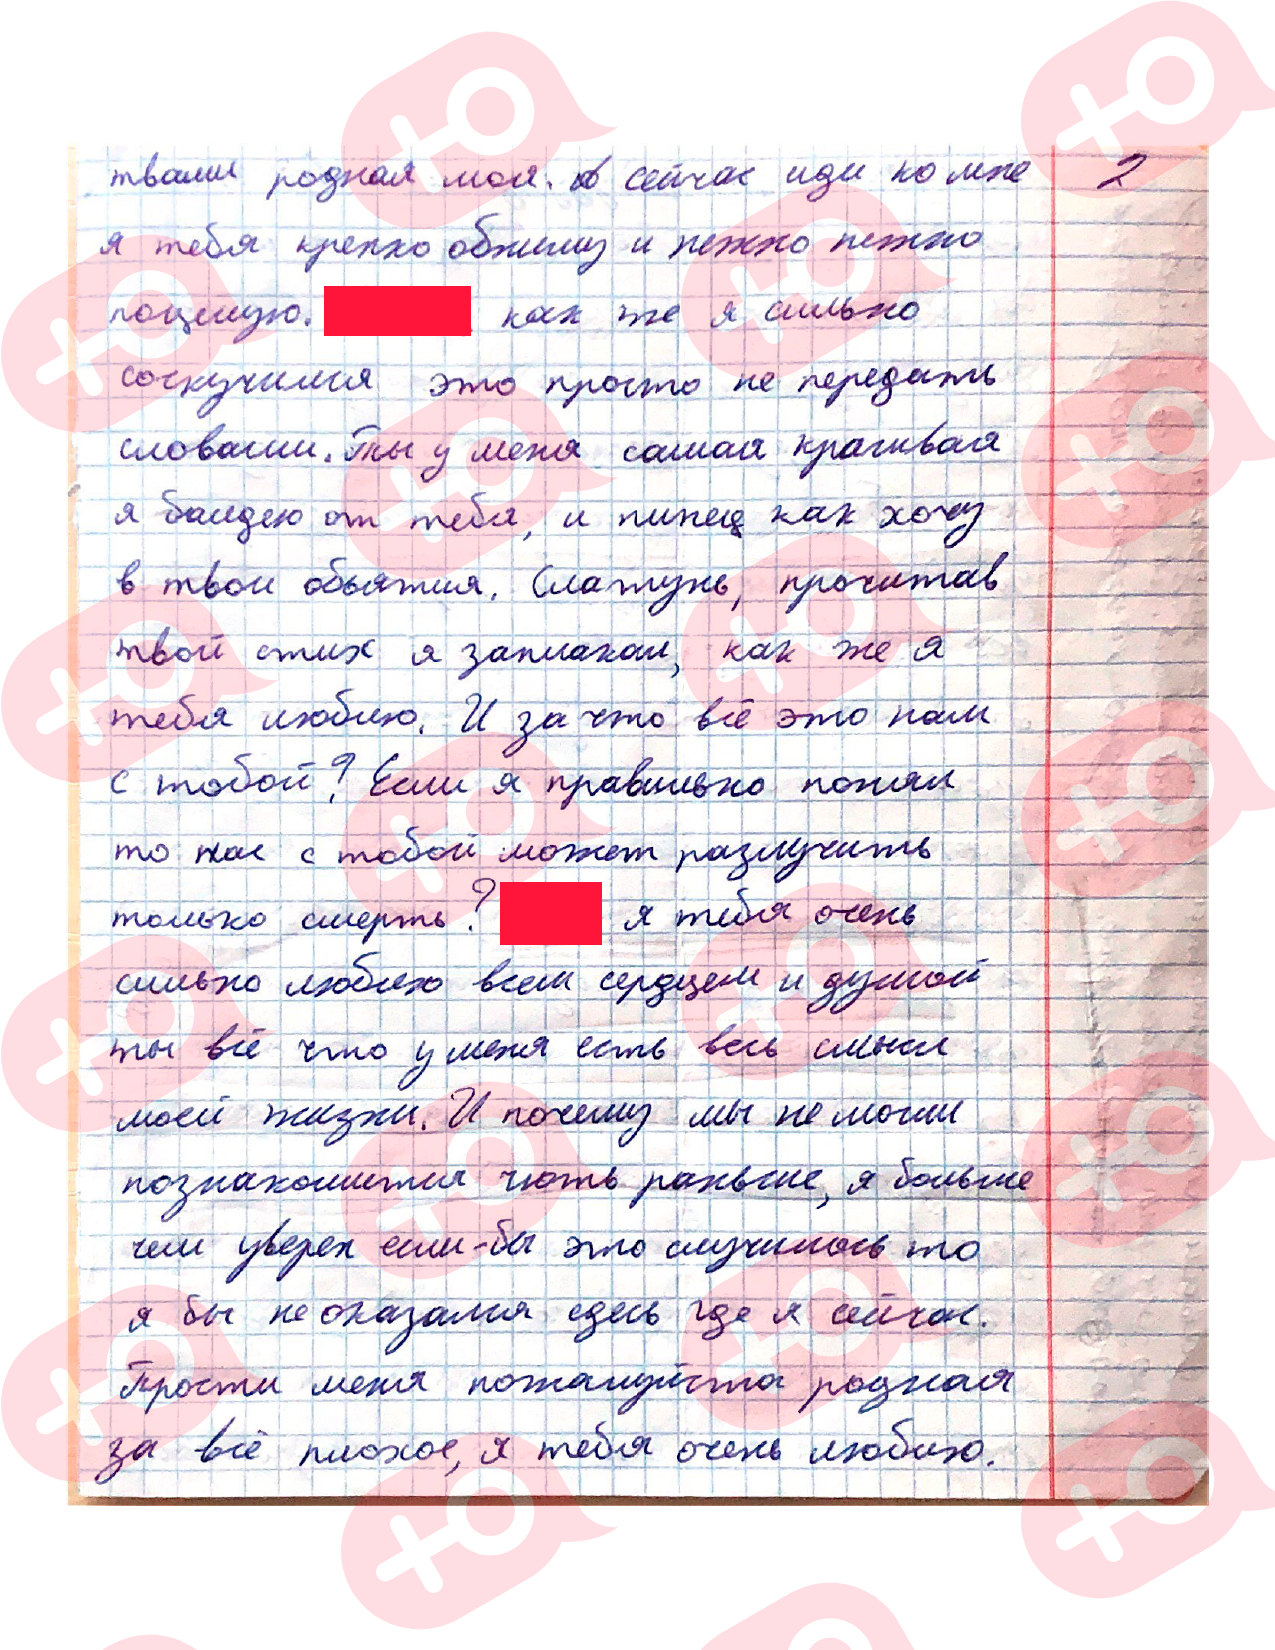 твами родная моя. А сейчас иди ко мне 2
я тебя крепко обниму и нежно нежно
поцелую. как же я сильно
соскучился это просто не передать
словами. Ты у меня самая красивая
я балдею от тебя, и пипец как хочу
в твои объятия. Слатунь, прочитав
твой стих я заплакал, как же я
тебя люблю. И за что всё это нам
с тобой? Если я правильно понял
то нас с тобой может разлучить
только смерть? я тебя очень
сильно люблю всем сердцем и душой
ты всё что у меня есть весь смысл
моей жизни. И почему мы не могли
познакомится чють раньше, я больше
чем уверен если-бы это случилось то
я бы не оказался сдесь где я сейчас.
Прости меня пожалуйста родная
за всё плохое, я тебя очень люблю.